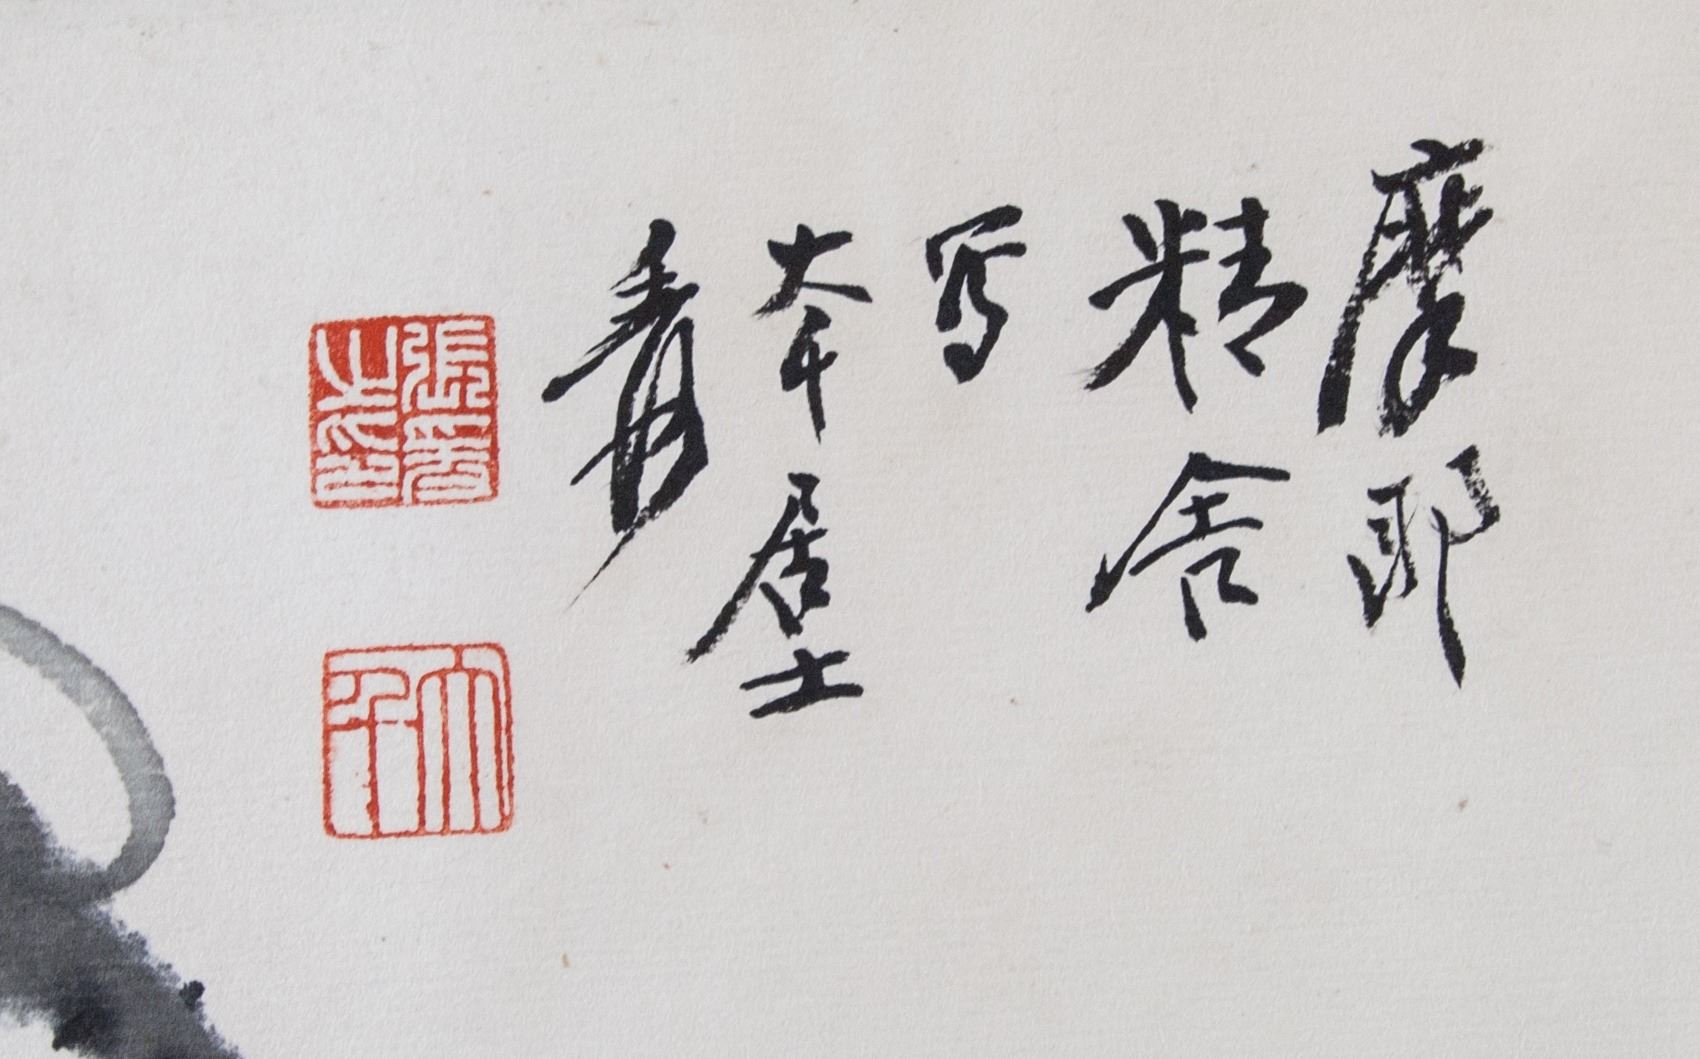 摩耶
精舍
写
大千居士
爰
張爰
之印
大千